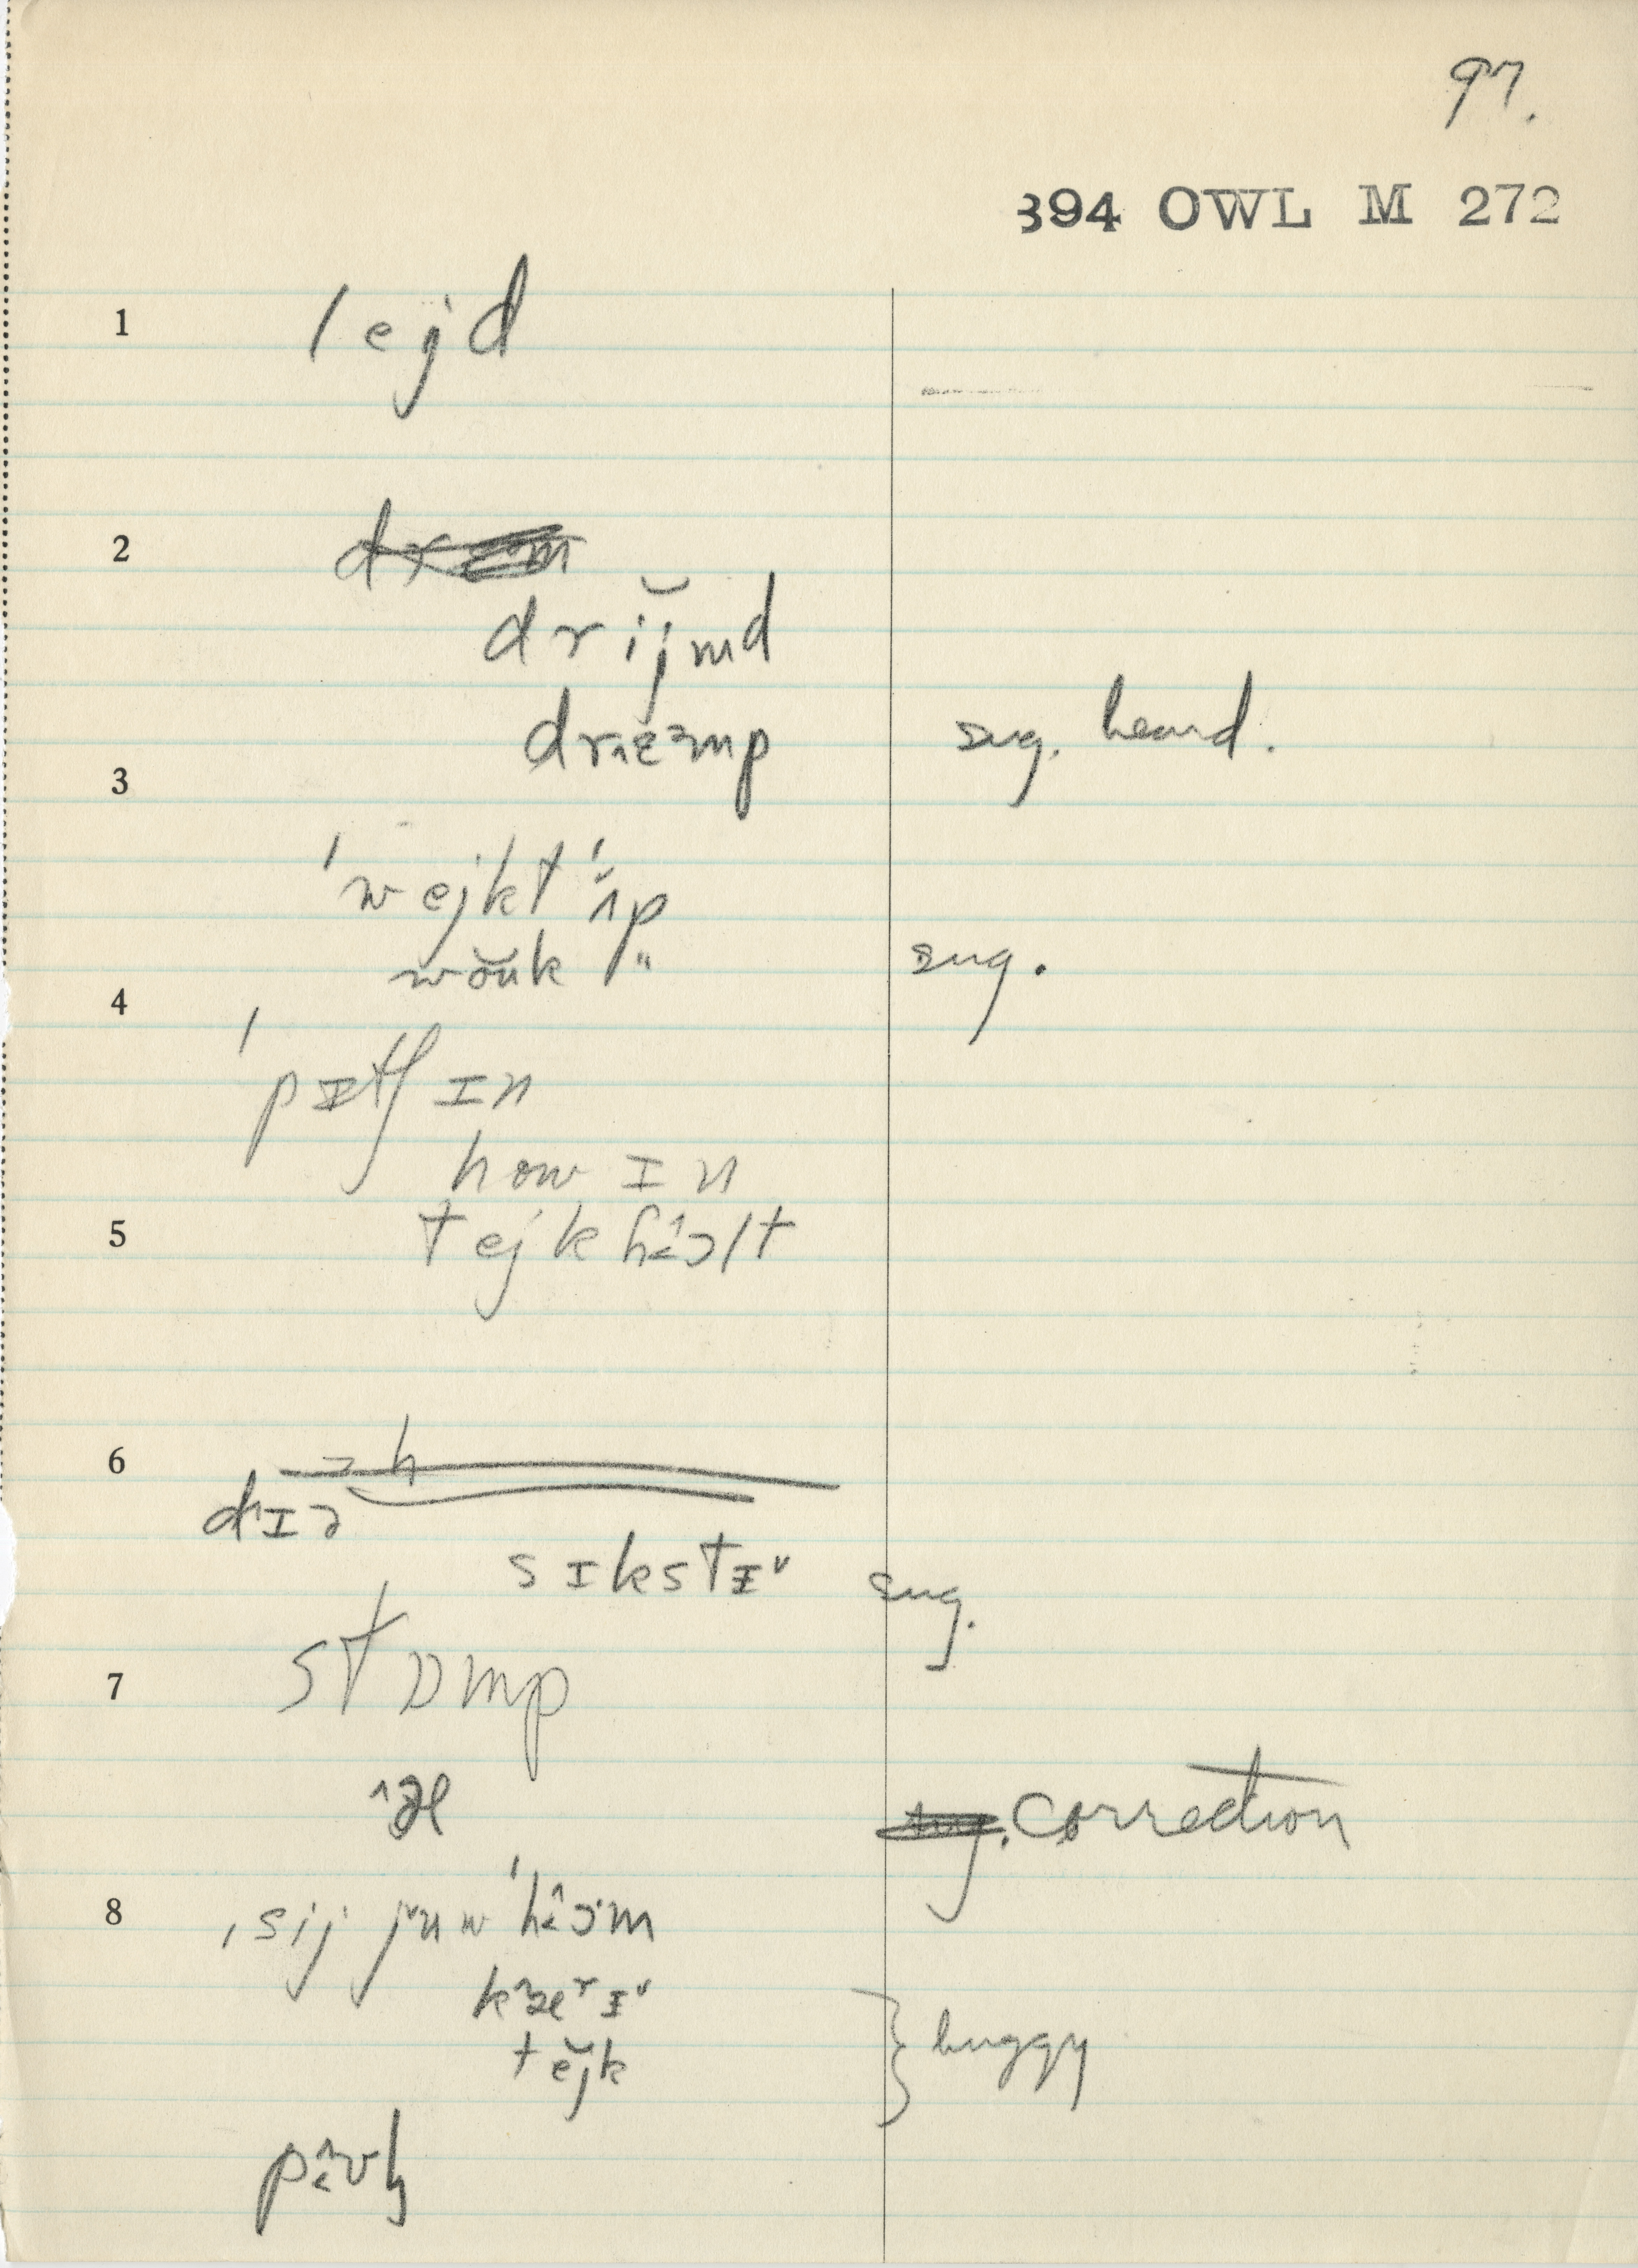 97.
394 OWL M 272
1 lejd
2
drĭjmd
drɛᵊmp sug. heard.
3
ˈwejkt ˈʌ̆p
wŏuk " sug.
4
ˈpɪtʃ ɪn
how ɪn
5 tejk hɔlt
6
dɪə
sɪkstɪ˅ sug.
7 stɒmp
æ correction
8 ˌsij juw ˈhɔm
kærɪ˅
tĕjk } buggy